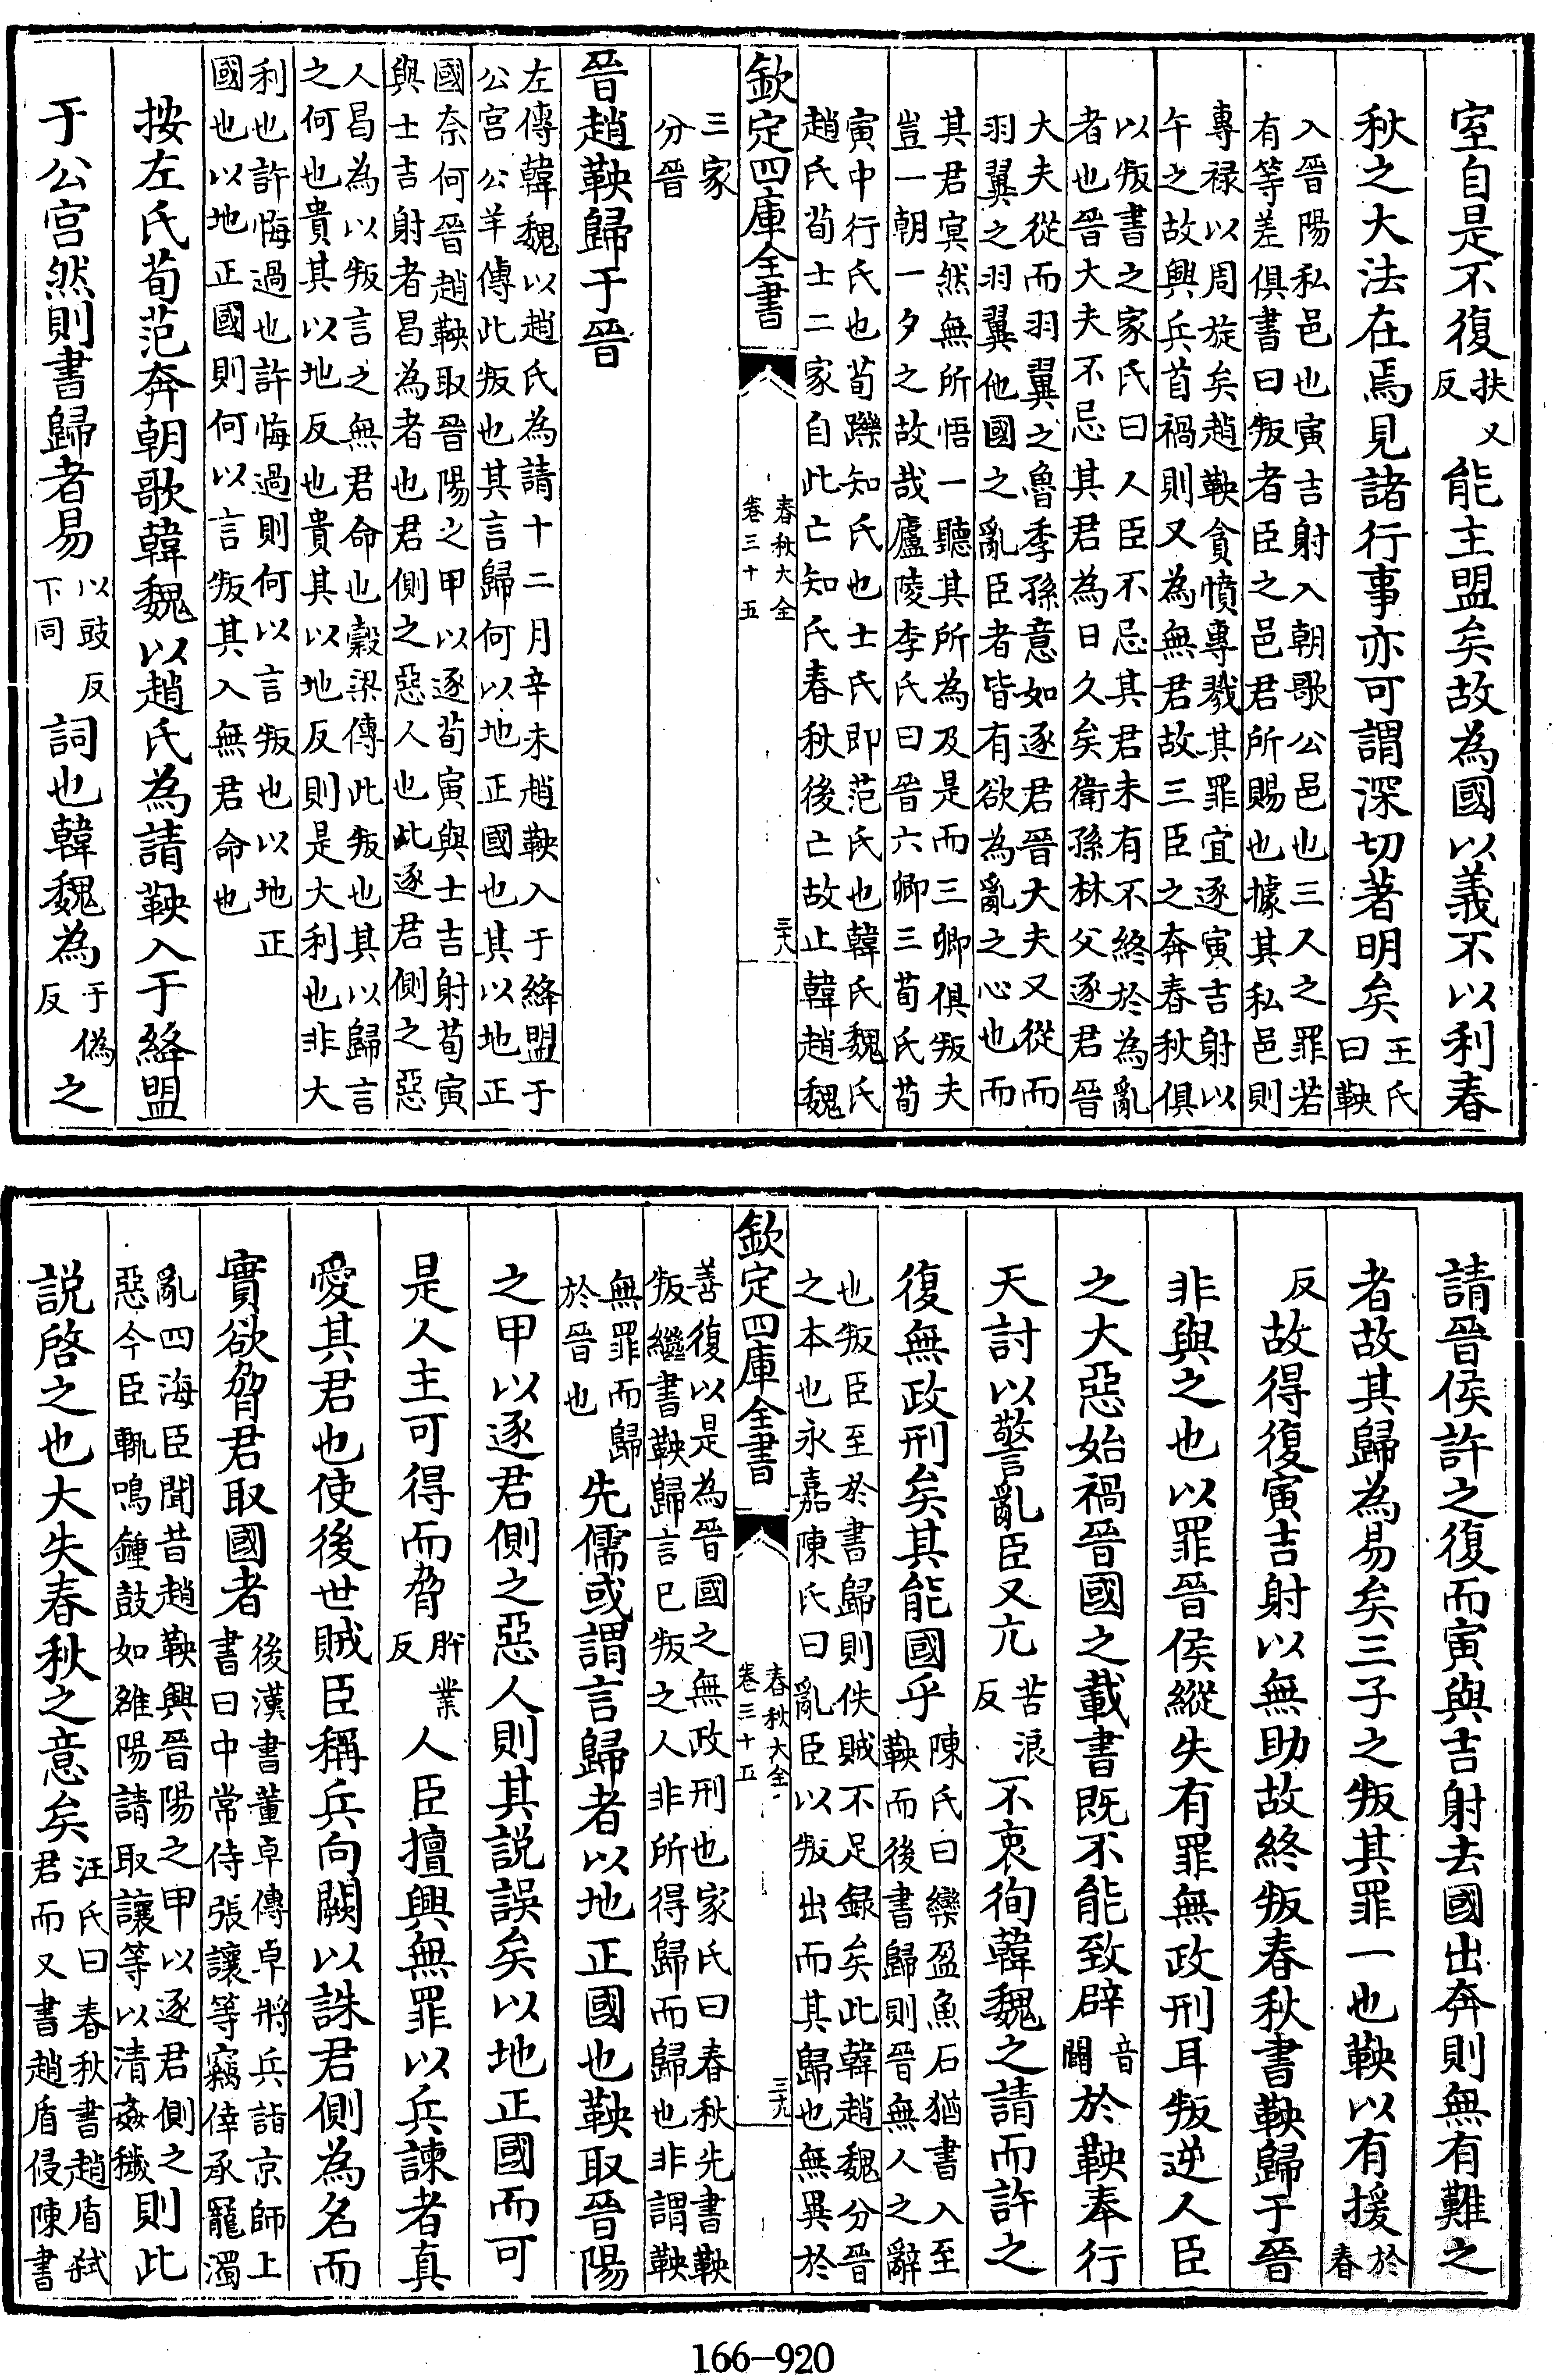 室自是不復扶又反能主盟矣故為國以義不以利春
秋之大法在焉見諸行事亦可謂深切著明矣王氏曰鞅
入晉陽私邑也寅吉射入朝歌公邑也三人之罪若
有等差俱書曰叛者臣之邑君所賜也據其私邑則
專禄以周旋矣趙鞅貪憤專戮其罪宜逐寅吉射以
午之故興兵首禍則又為無君故三臣之奔春秋俱
以叛書之家氏曰人臣不忌其君未有不終於為亂
者也晉大夫不忌其君為日久矣衛孫林父逐君晉
大夫從而羽翼之魯季孫意如逐君晉大夫又從而
羽翼之羽翼他國之亂臣者皆有欲為亂之心也而
其君冥然無所悟一聽其所為及是而三卿俱叛夫
豈一朝一夕之故哉廬陵李氏曰晉六卿三荀氏荀
寅中行氏也荀躒知氏也士氏即范氏也韓氏魏氏
趙氏荀士二家自此亡知氏春秋後亡故止韓趙魏
欽定四庫全書
春秋大全
卷三十五
三十八
三家
分晉
晉趙鞅歸于晉
左傳韓魏以趙氏為請十二月辛未趙鞅入于絳盟于
公宫公羊傳此叛也其言歸何以地正國也其以地正
國奈何晉趙鞅取晉陽之甲以逐荀寅與士吉射荀寅
與士吉射者曷為者也君側之惡人也此逐君側之惡
人曷為以叛言之無君命也穀梁傳此叛也其以歸言
之何也貴其以地反也貴其以地反則是大利也非大
利也許悔過也許悔過則何以言叛也以地正
國也以地正國則何以言叛其入無君命也
按左氏荀范奔朝歌韓魏以趙氏為請鞅入于絳盟
于公宫然則書歸者易以豉反下同詞也韓魏為于偽反之
請晉侯許之復而寅與吉射去國出奔則無有難之
者故其歸為易矣三子之叛其罪一也鞅以有援於春
反故得復寅吉射以無助故終叛春秋書鞅歸于晉
非與之也以罪晉侯縱失有罪無政刑耳叛逆人臣
之大惡始禍晉國之載書既不能致辟音闢於鞅奉行
天討以警亂臣又亢苦浪反不衷徇韓魏之請而許之
復無政刑矣其能國乎陳氏曰欒盈魚石猶書入至
鞅而後書歸則晉無人之辭
也叛臣至於書歸則佚賊不足録矣此韓趙魏分晉
之本也永嘉陳氏曰亂臣以叛出而其歸也無異於
欽定四庫全書
春秋大全
卷三十五
三十九
善復以是為晉國之無政刑也家氏曰春秋先書鞅
叛繼書鞅歸言已叛之人非所得歸而歸也非謂鞅
無罪而歸
於晉也
先儒或謂言歸者以地正國也鞅取晉陽
之甲以逐君側之惡人則其説誤矣以地正國而可
是人主可得而脅肸業反人臣擅興無罪以兵諫者真
愛其君也使後世賊臣稱兵向闕以誅君側為名而
實欲脅君取國者後漢書董卓傳卓將兵詣京師上
書曰中常侍張讓等竊倖承寵濁
亂四海臣聞昔趙鞅興晉陽之甲以逐君側之
惡今臣輒鳴鐘鼓如雒陽請取讓等以清姦穢則此
説啓之也大失春秋之意矣汪氏曰春秋書趙盾弑
君而又書趙盾侵陳書
166-920